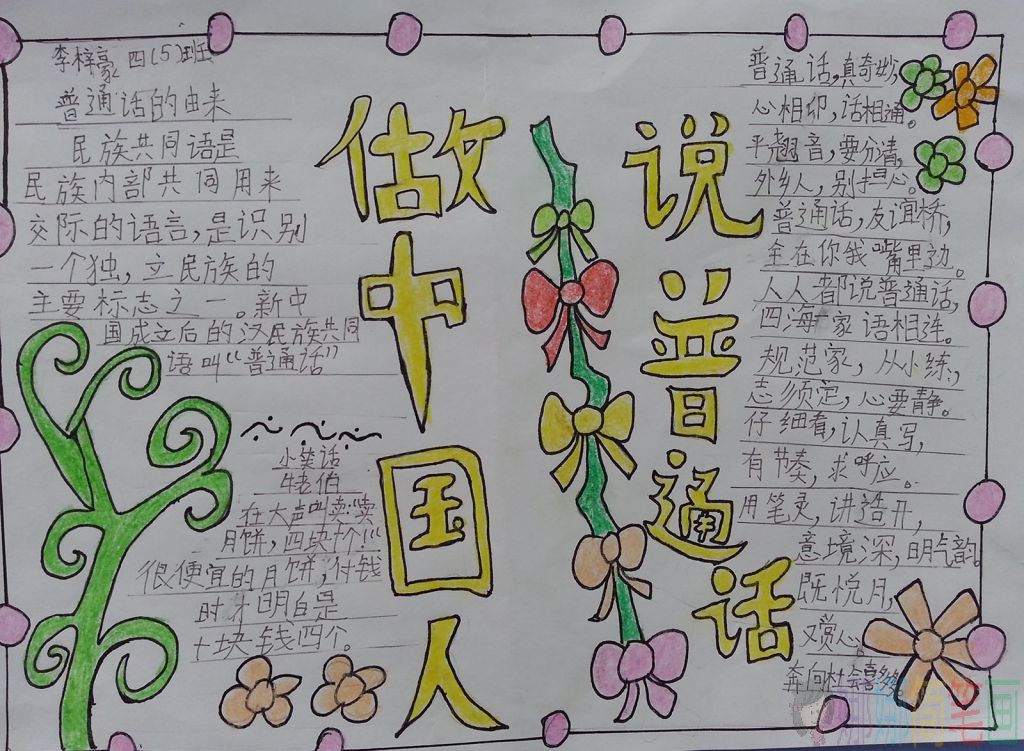 李梓豪 四(5)班
普通话的由来
民族共同语是
民族内部共同用来
交际的语言,是识别
一个独,立民族的
主要标志之一。新中
国成立后的汉民族共同
语叫“普通话”
小笑话
牛老伯
在大声叫卖
月饼,四块十个!
很便宜的月饼,付钱
时才明白是
十块钱四个。
做中国人
说普通话
普通话,真奇妙,
心相印,话相通。
平翘音,要分清,
外乡人,别担心。
普通话,友谊桥,
全在你我嘴里边。
人人都说普通话,
四海家语相连。
规范家,从小练,
志须定,心要静。
仔细看,认真写,
有节奏,求呼应。
用笔灵,讲造开,
意境深,明气韵。
既悦月,
又赏心。
奔向社会喜
娜娜简笔画